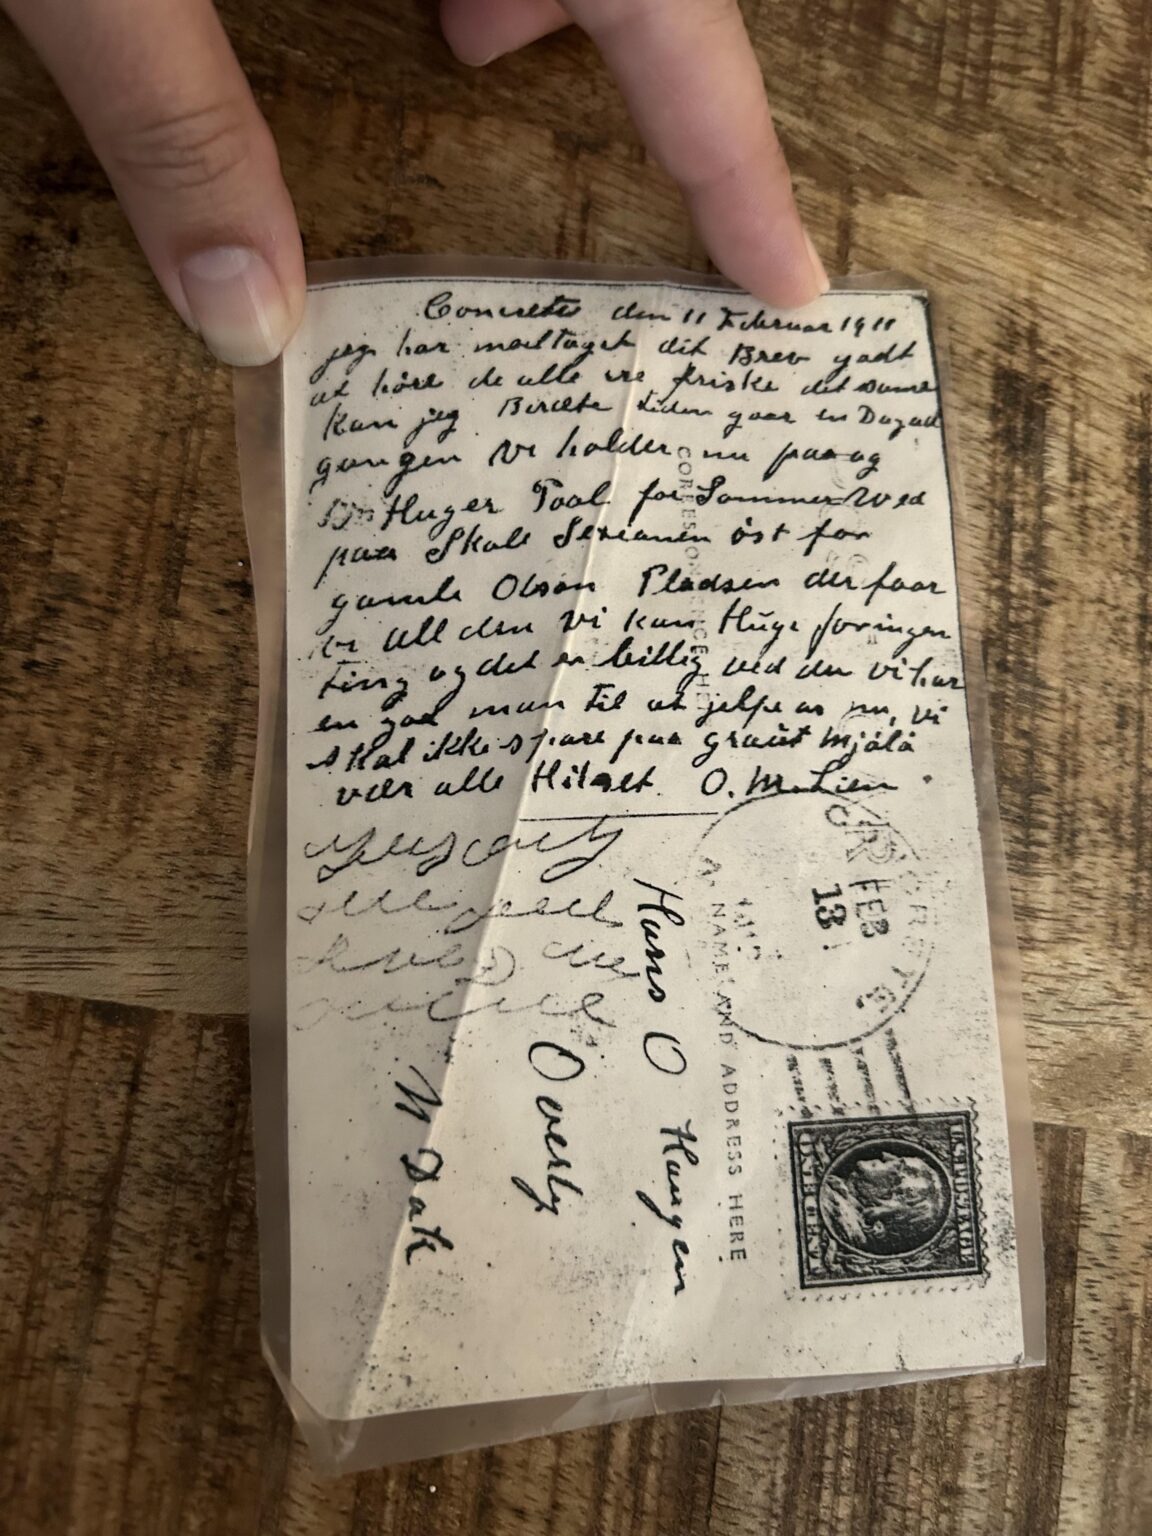 Concrete den 11 Februar 1911
jeg har modtaget dit Brev godt
at høre de alle ere friske det same
kan jeg Berette tiden gaar en Dag ad
gangen Vi holder nu paa og
Huger Pool for Sommer Ved
paa Skole Sexionen öst for
gamle Olson Pladsen der faar
vi all den Vi kan Huge for ingen
Ting og det er billig ved den vi har
en god man til at jelpe os nu, vi
skal ikke spare paa graut Mjølå
vær alle Hilset O. M. Lien
CORRESPONDENCE HERE
NAME AND ADDRESS HERE
CONCRETE
FEB
13
Hans O Haugen
Overly
N Dak